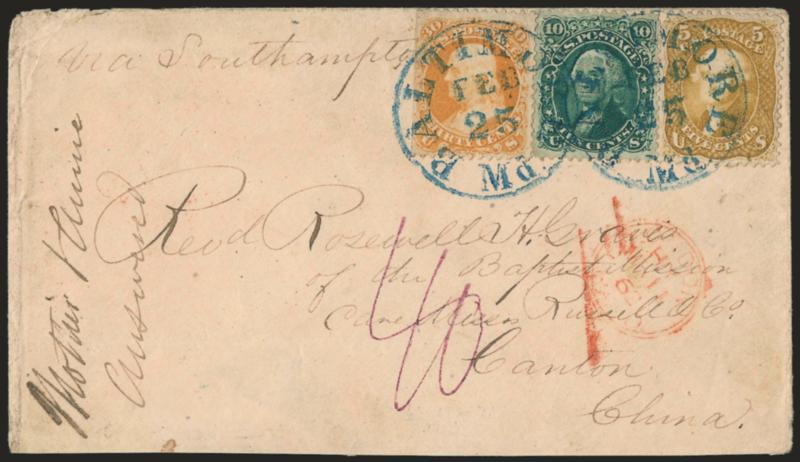 via Southampton
30 POSTAGE
THIRTY CENTS
10 U.S. POSTAGE 10
TEN CENTS
5 POSTAGE 5
U FIVE CENTS S
BALTIMORE
FEB
25
MD
Revd. Rosewell H. Graves
of the Baptist Mission
Care Messrs Russell & Co.
Canton
China.
40
Mother
Answered